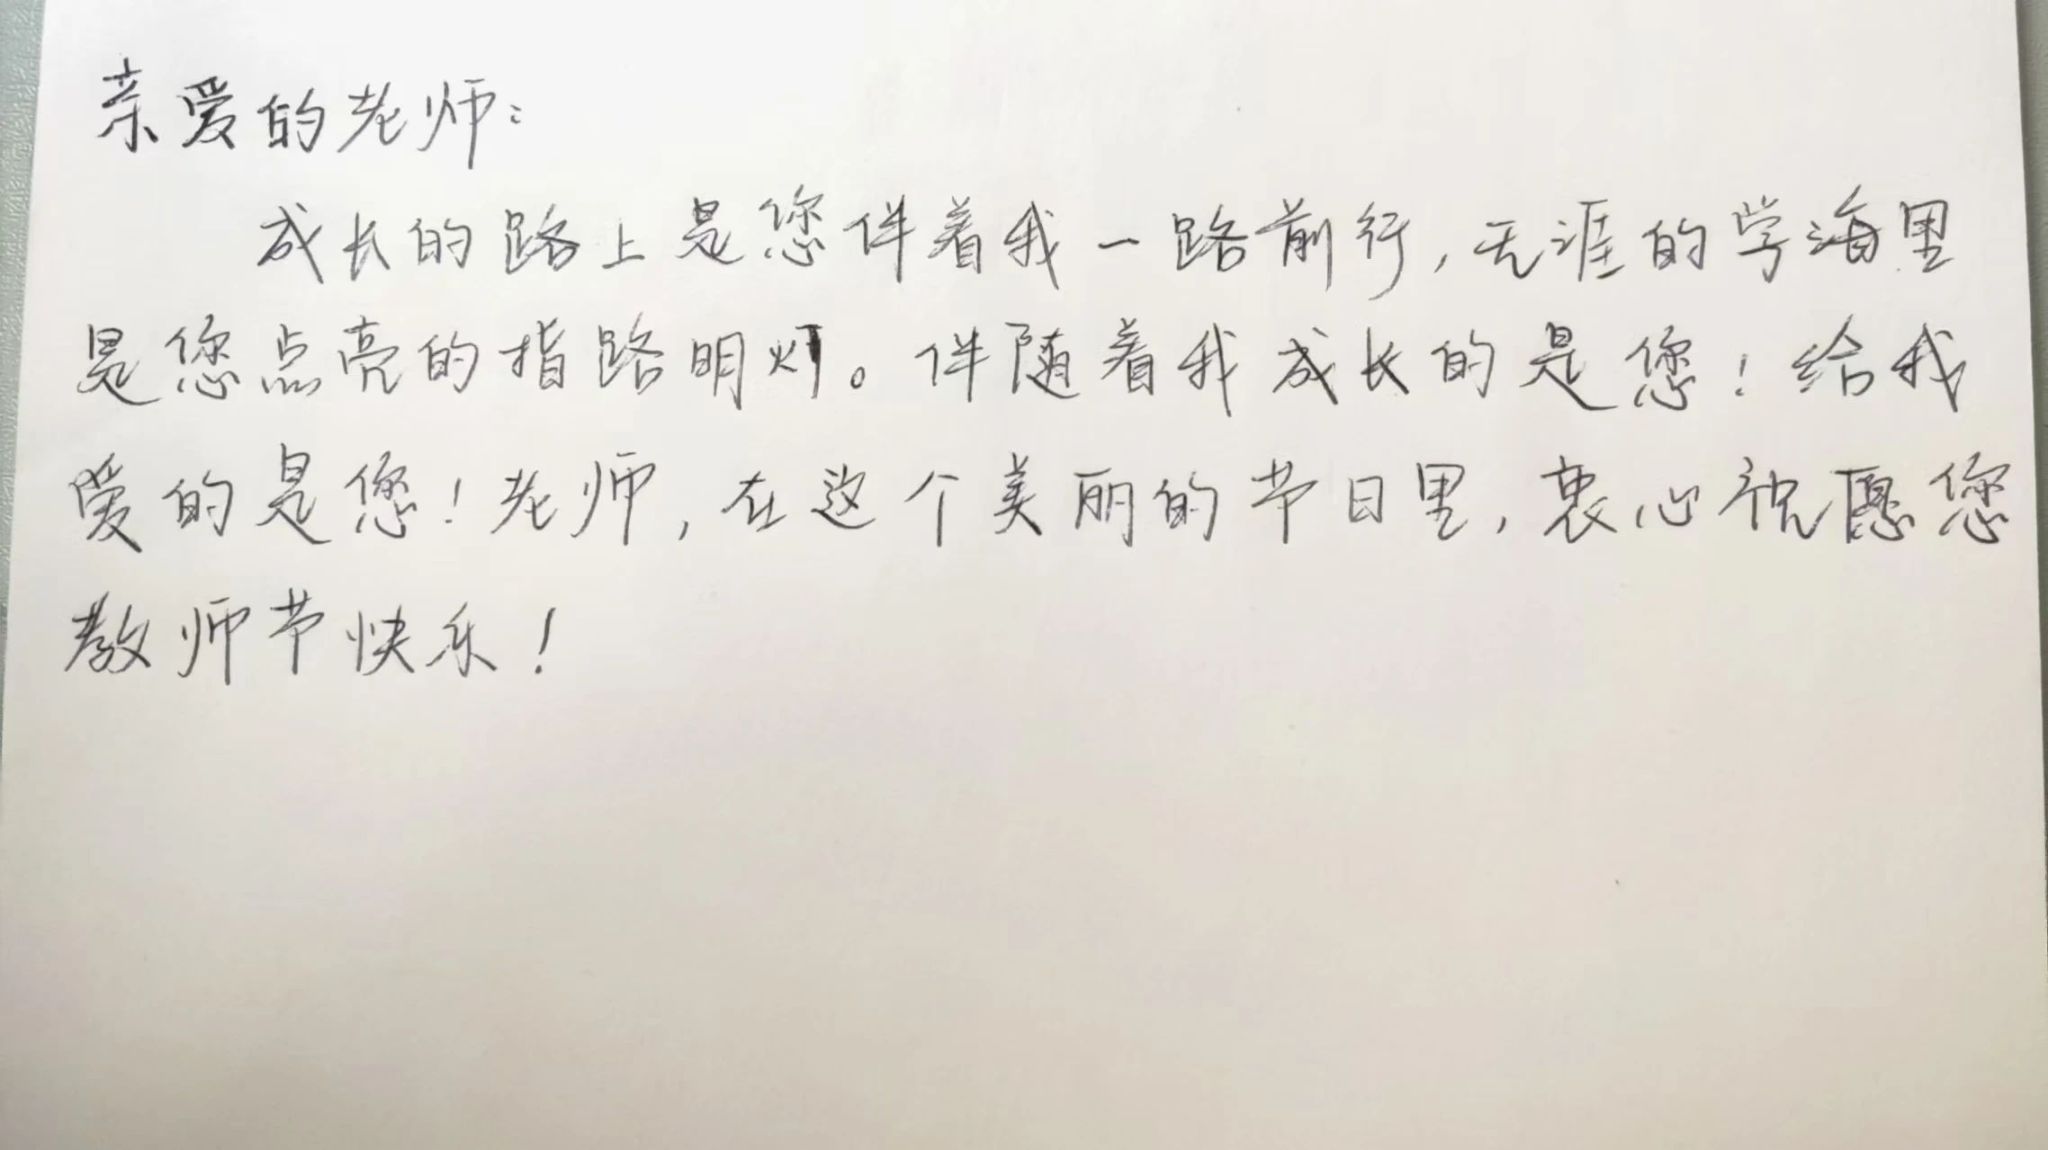 亲爱的老师：
成长的路上是您伴着我一路前行，无涯的学海里
是您点亮的指路明灯。伴随着我成长的是您！给我
爱的是您！老师，在这个美丽的节日里，衷心祝愿您
教师节快乐！